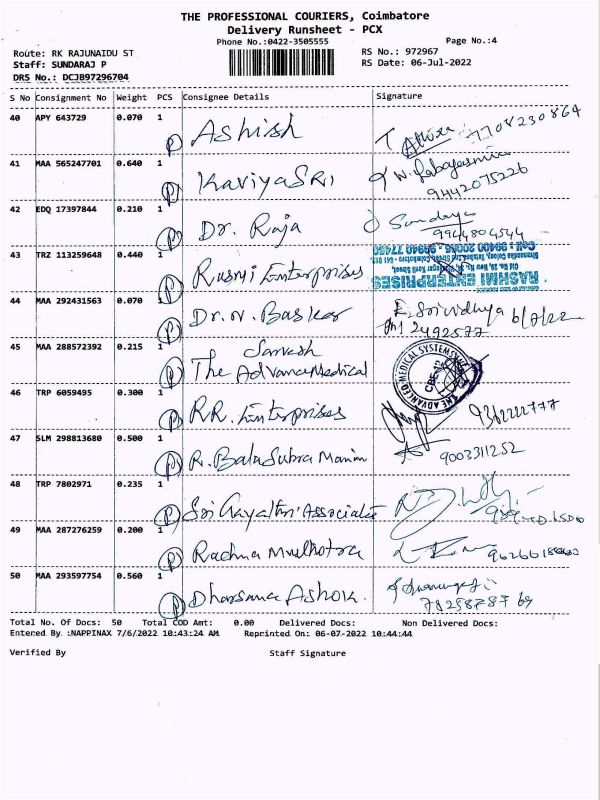 THE PROFESSIONAL COURIERS, Coimbatore
Delivery Runsheet - PCX
Phone No.:0422-3505555
Page No.:4
Route: RK RAJUNAIDU ST
RS No.: 972967
Staff: SUNDARAJ P
RS Date: 06-Jul-2022
DRS No.: DCJB97296704
S No Consignment No Weight PCS Consignee Details Signature
40 APY 643729 0.070 1 P Ashish 7708230864
41 MAA 565247701 0.640 1 P KaviyaSRI 9442075226
42 EDQ 17397844 0.210 1 P Dr. Raja Sandhya 9944804544
43 TRZ 113259648 0.440 1 P Rusmi Enterprises RASHMI ENTERPRISES
44 MAA 292431563 0.070 1 P Dr. N. Basker E. Srividhya 6/7/22
2492577
45 MAA 288572392 0.215 1 P Sarvesh
The Advance Medical THE ADVANCED MEDICAL SYSTEMS CBE-12
46 TRP 6059495 0.300 1 P R.R. Enterprises
47 SLM 298813680 0.500 1 P R. BalaSubra Maniam 9003311252
48 TRP 7802971 0.235 1 P Sri Gayathri Associate
49 MAA 287276259 0.200 1 P Rachna Mulhotra
50 MAA 293597754 0.560 1 P Dharsana Ashok.
Total No. Of Docs: 50 Total COD Amt: 0.00 Delivered Docs: Non Delivered Docs:
Entered By :NAPPINAX 7/6/2022 10:43:24 AM Reprinted On: 06-07-2022 10:44:44
Verified By Staff Signature